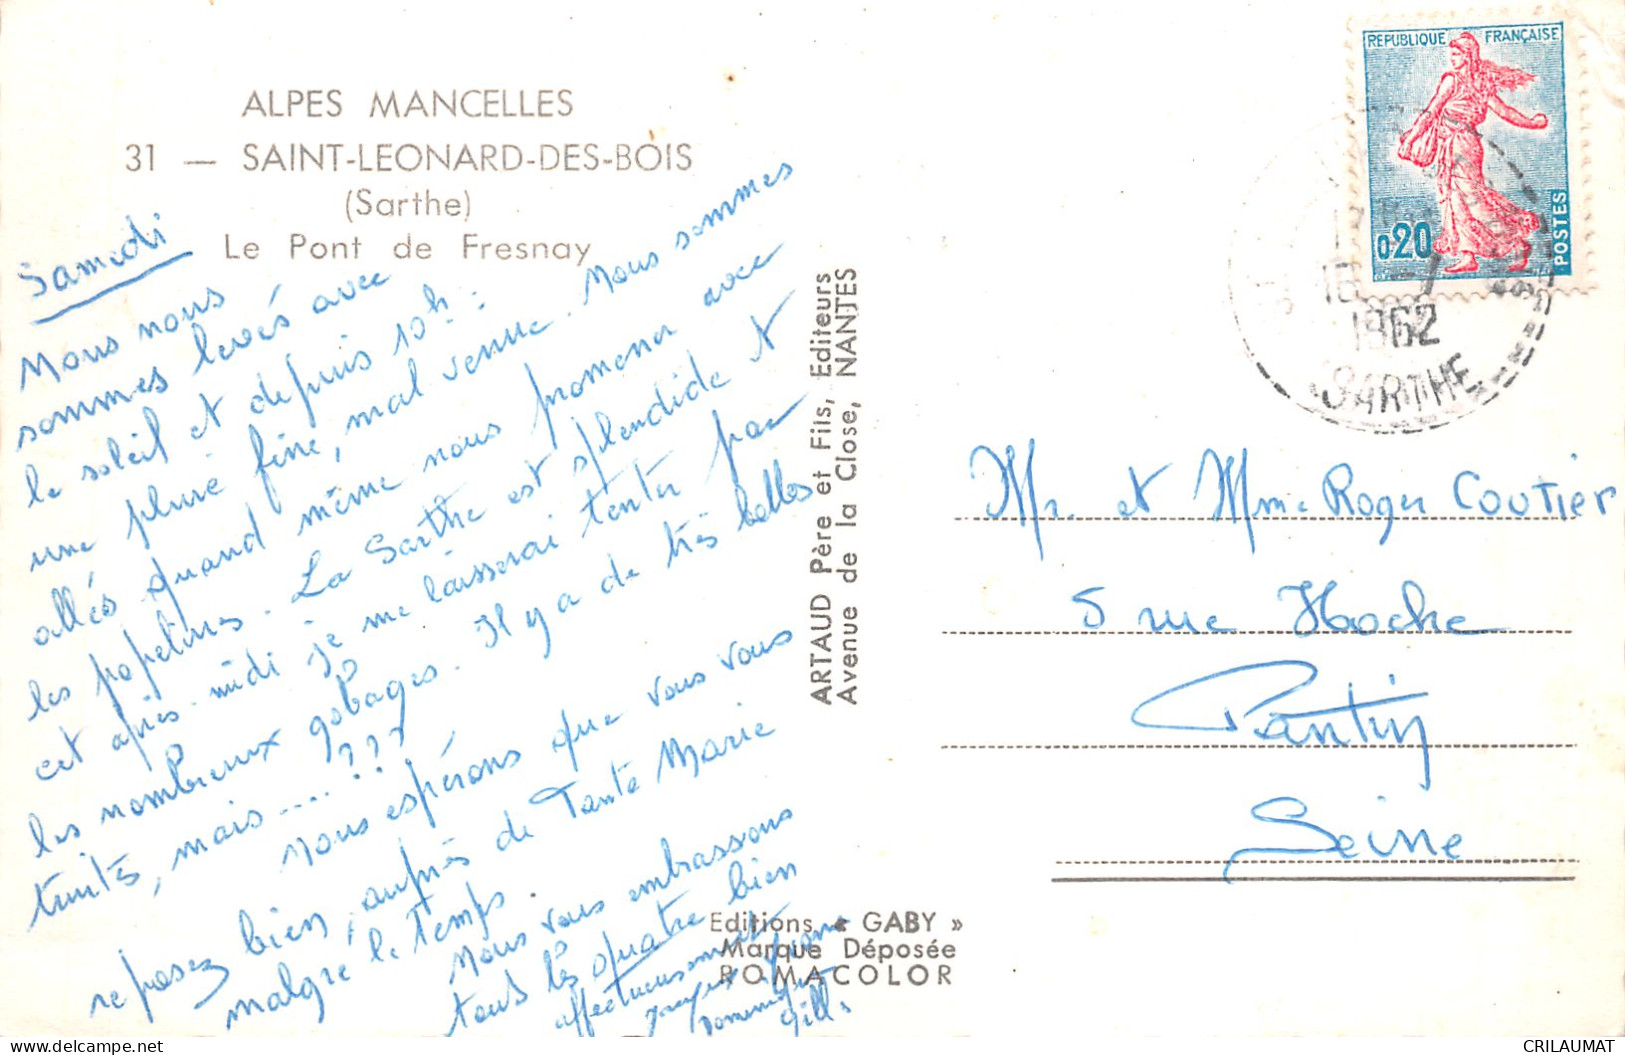 ALPES MANCELLES
31 — SAINT-LEONARD-DES-BOIS
(Sarthe)
Le Pont de Fresnay
Samedi
Nous nous
sommes levés avec
le soleil et depuis 10h :
une pluie fine, mal venue. Nous sommes
allés quand même nous promener avec
les popelines. La Sarthe est splendide et
cet après-midi je me laisserai tenter par
les nombreux gobages. Il y a de très belles
truites, mais .... ???
Nous espérons que vous vous
reposez bien, auprès de Tante Marie
malgré le temps.
Nous vous embrassons
tous les quatre bien
affectueusement
Gill
ARTAUD Père et Fils, Editeurs
Avenue de la Close, NANTES
Editions « GABY »
Marque Déposée
ROMACOLOR
REPUBLIQUE FRANÇAISE
0,20
POSTES
1962
SARTHE
Mr. et Mme Roger Coutier
5 rue Hoche
Pantin
Seine
CRILAUMAT